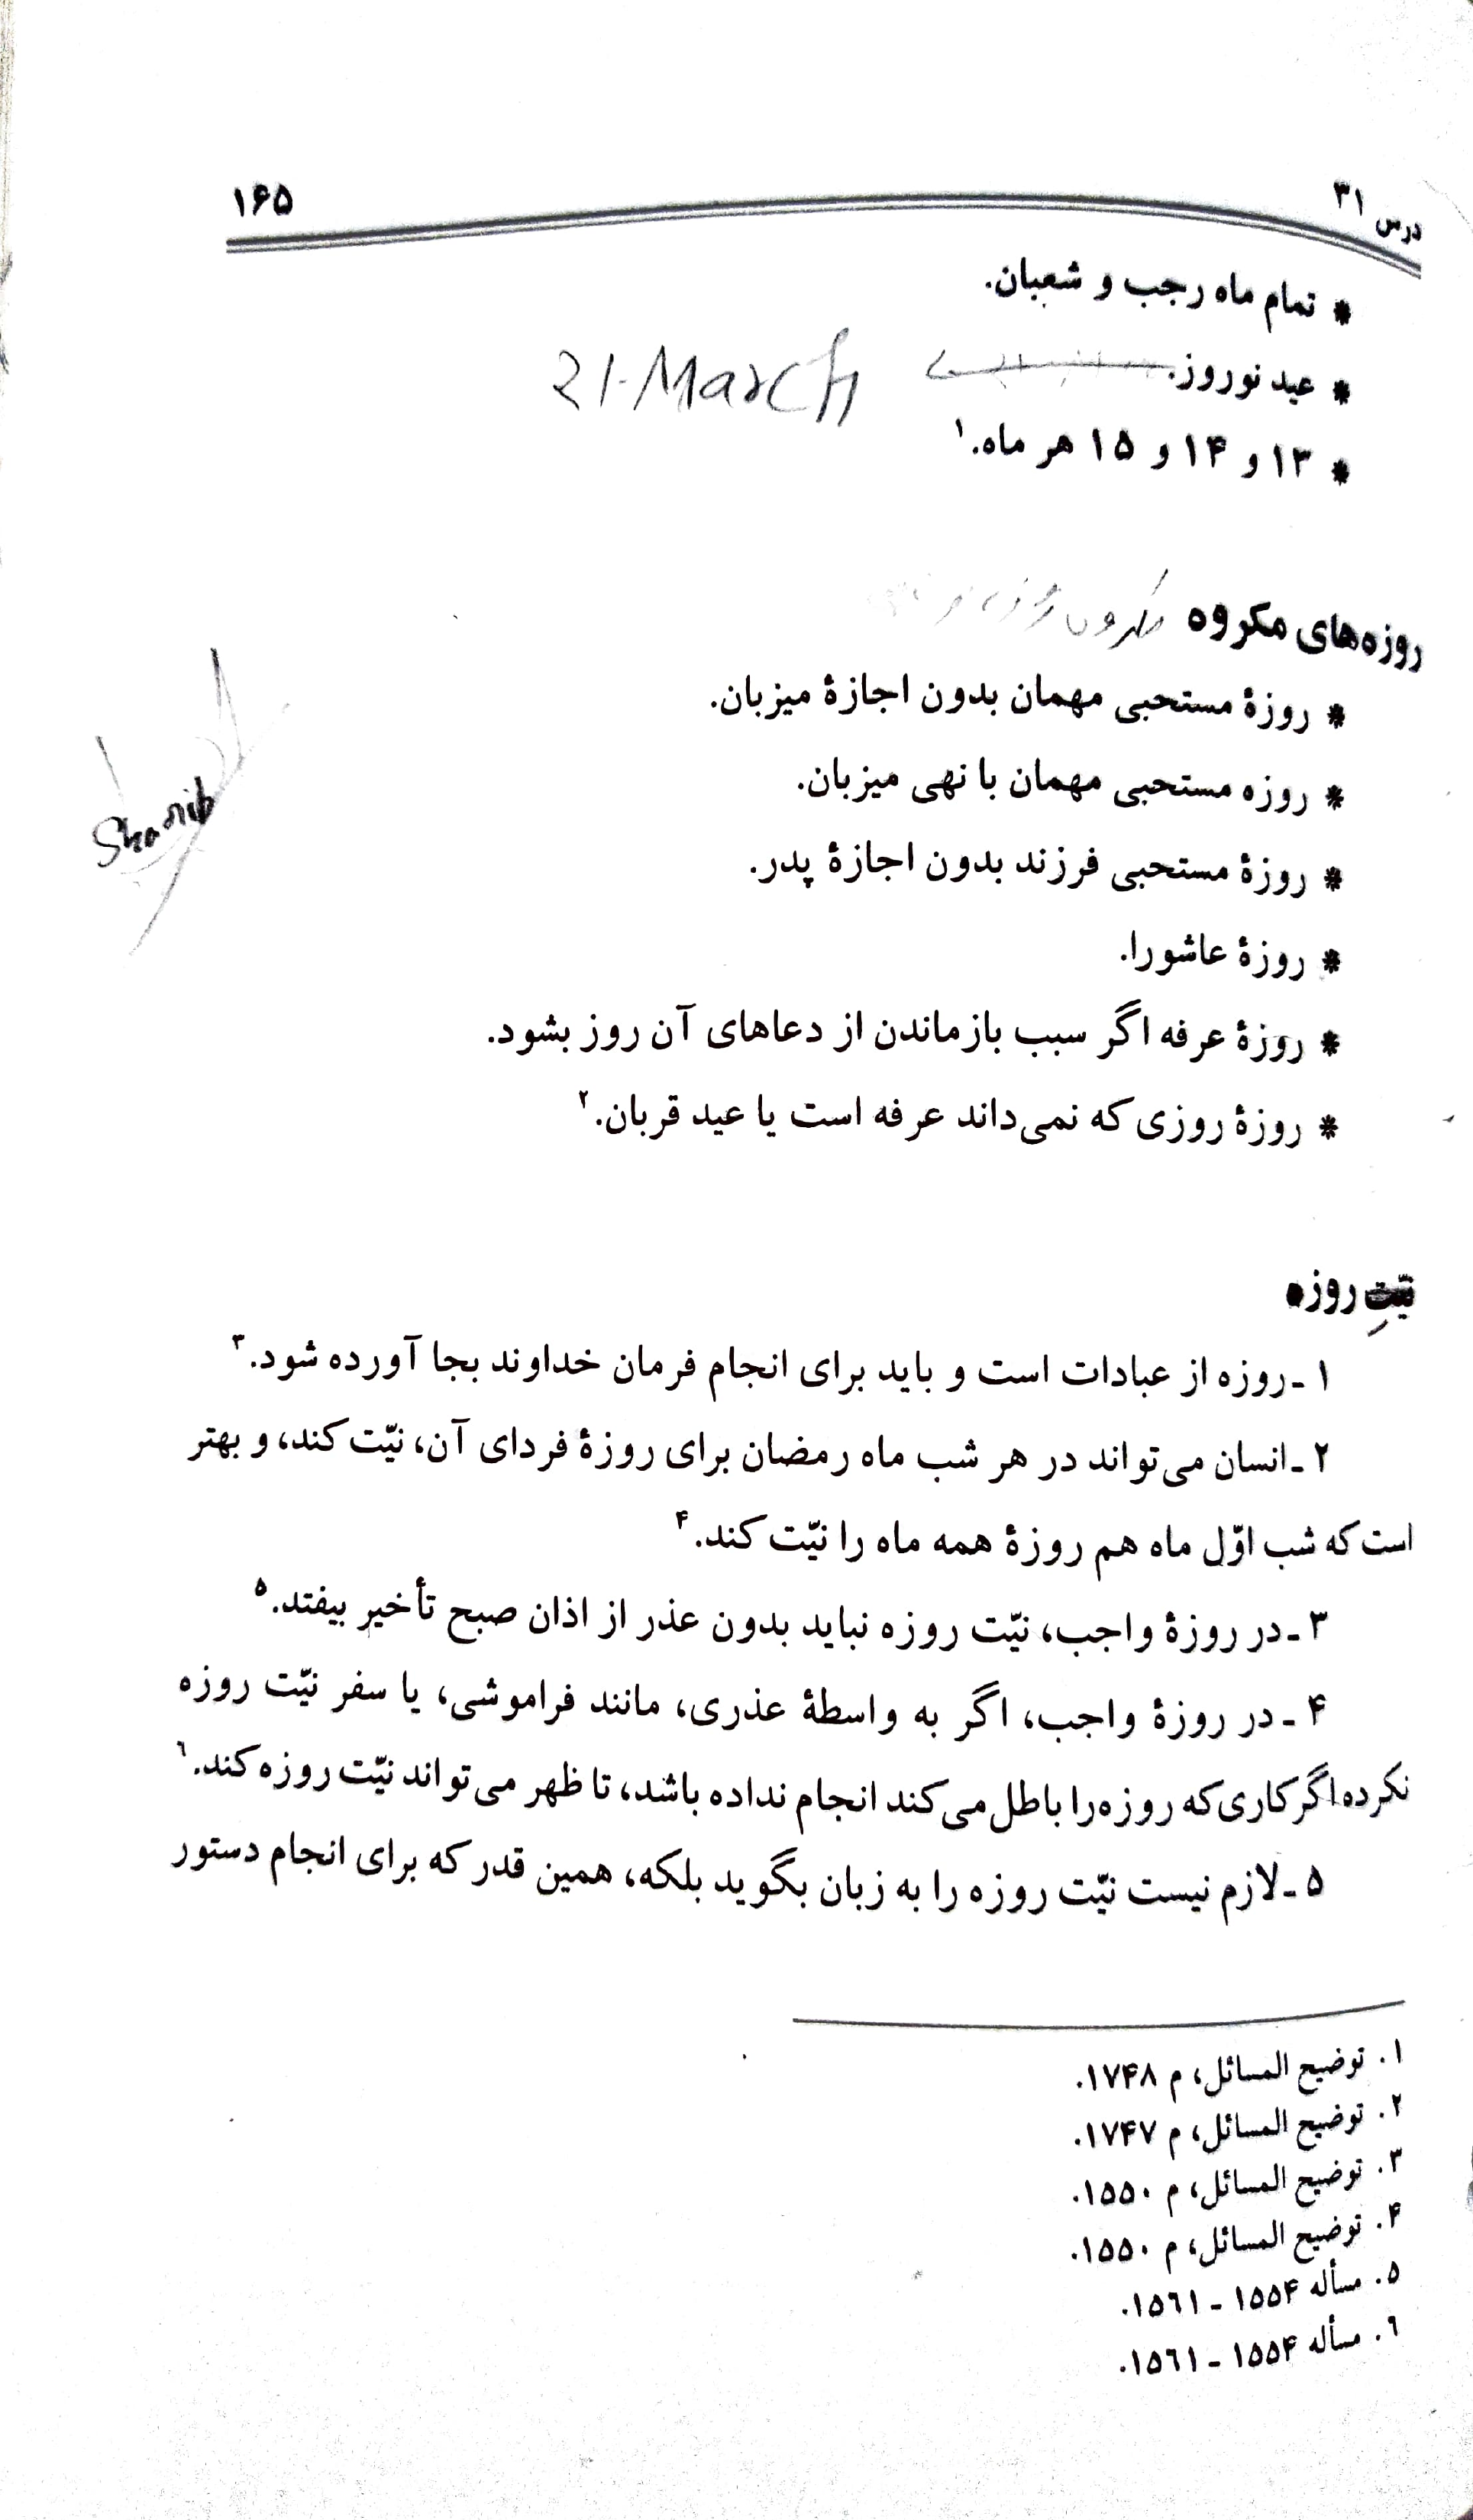 درس ۳۱
۱۶۵
* تمام ماه رجب و شعبان.
* عید نوروز.
21-March
* ۱۳ و ۱۴ و ۱۵ هر ماه.۱
روزه‌های مکروه
* روزهٔ مستحبی مهمان بدون اجازهٔ میزبان.
* روزه مستحبی مهمان با نهی میزبان.
* روزهٔ مستحبی فرزند بدون اجازهٔ پدر.
* روزهٔ عاشورا.
* روزهٔ عرفه اگر سبب بازماندن از دعاهای آن روز بشود.
* روزهٔ روزی که نمی‌داند عرفه است یا عید قربان.۲
نیّتِ روزه
۱ ـ روزه از عبادات است و باید برای انجام فرمان خداوند بجا آورده شود.۳
۲ ـ انسان می‌تواند در هر شب ماه رمضان برای روزهٔ فردای آن، نیّت کند، و بهتر
است که شب اوّل ماه هم روزهٔ همه ماه را نیّت کند.۴
۳ ـ در روزهٔ واجب، نیّت روزه نباید بدون عذر از اذان صبح تأخیر بیفتد.۵
۴ ـ در روزهٔ واجب، اگر به واسطهٔ عذری، مانند فراموشی، یا سفر نیّت روزه
نکرده اگر کاری که روزه را باطل می‌کند انجام نداده باشد، تا ظهر می‌تواند نیّت روزه کند.٦
۵ ـ لازم نیست نیّت روزه را به زبان بگوید بلکه، همین قدر که برای انجام دستور
۱. توضیح المسائل، م ۱۷۴۸.
۲. توضیح المسائل، م ۱۷۴۷.
۳. توضیح المسائل، م ۱۵۵۰.
۴. توضیح المسائل، م ۱۵۵۰.
۵. مسأله ۱۵۵۴ ـ ۱۵٦۱.
٦. مسأله ۱۵۵۴ ـ ۱۵٦۱.